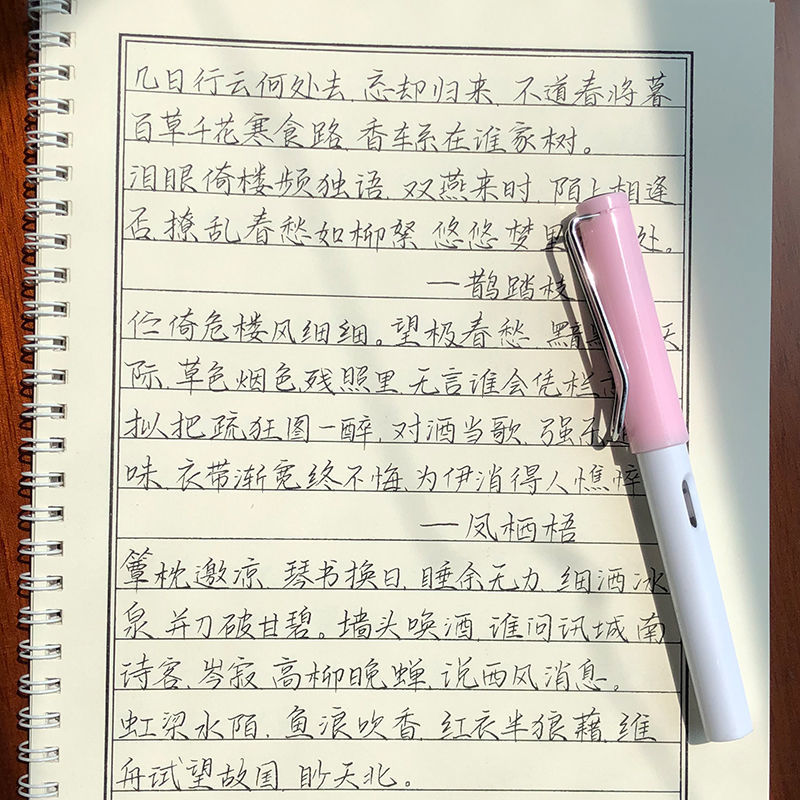 几日行云何处去,忘却归来,不道春将暮
百草千花寒食路,香车系在谁家树。
泪眼倚楼频独语,双燕来时,陌上相逢
否,撩乱春愁如柳絮,悠悠梦里处。
—鹊踏枝
伫倚危楼风细细。望极春愁,黯天
际,草色烟色残照里,无言谁会凭栏
拟把疏狂图一醉,对酒当歌,强
味,衣带渐宽终不悔,为伊消得人憔悴
—凤栖梧
簟枕邀凉,琴书换日,睡余无力,细洒冰
泉,并刀破甘碧。墙头唤酒,谁问讯城南
诗客,岑寂,高柳晚蝉,说西风消息。
虹梁水陌,鱼浪吹香,红衣半狼藉,维
舟试望故国,眇天北。